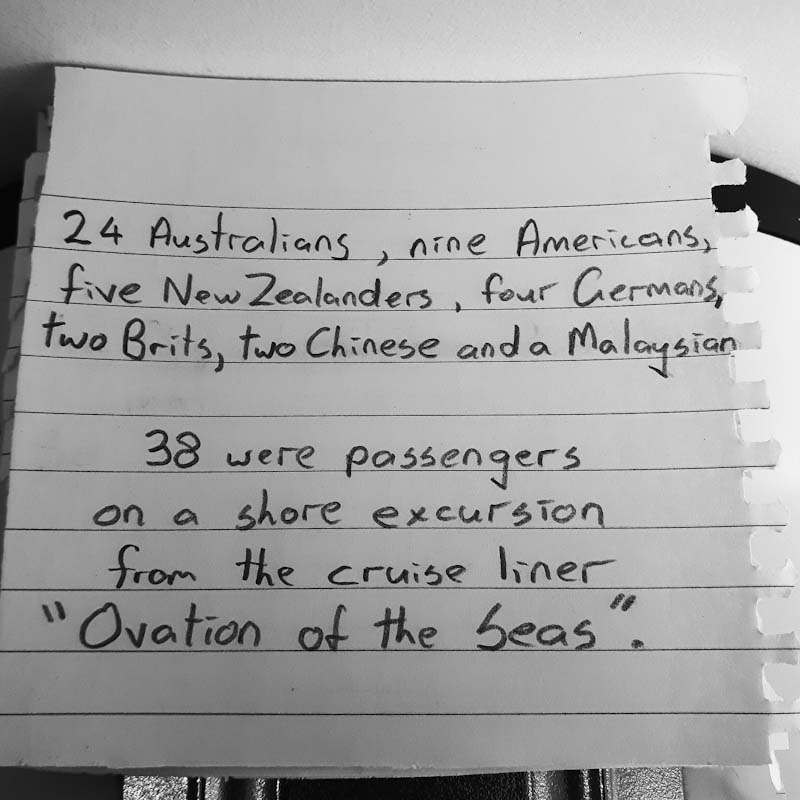 24 Australians, nine Americans,
five New Zealanders, four Germans,
two Brits, two Chinese and a Malaysian
38 were passengers
on a shore excursion
from the cruise liner
"Ovation of the Seas".